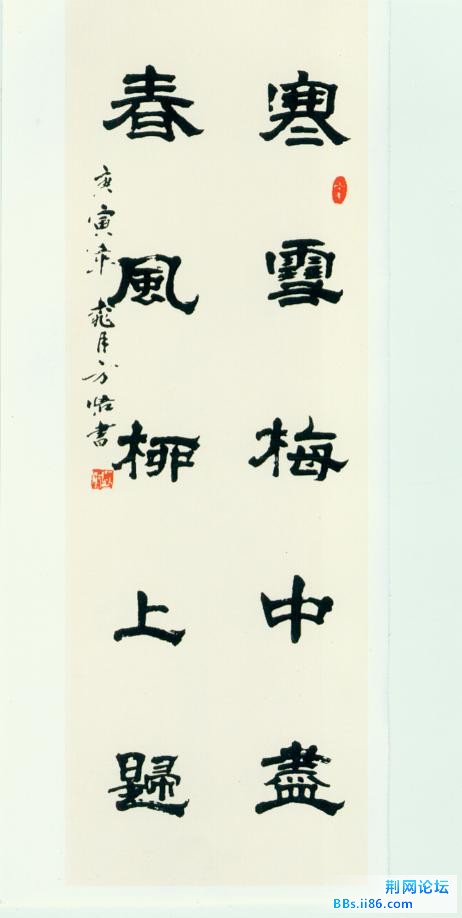 寒雪梅中盡
春風柳上歸
庚寅年 月 書
荆网论坛
BBs.ii86.com